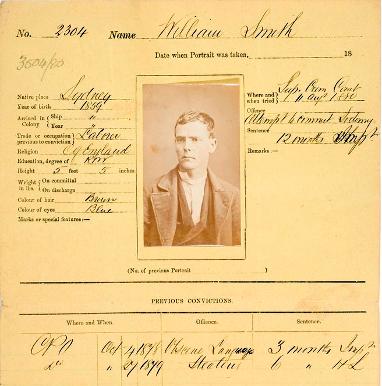 No. 2304 Name William Smith
Date when Portrait was taken, 18
3604/00
Native place Sydney
Year of birth 1859
Arrived in Colony } Ship "
Year "
Trade or occupation previous to conviction } Laborer
Religion C of England
Education, degree of R & W
Height 5 feet 5 inches
Weight in lbs. } On committal
On discharge
Colour of hair Brown
Colour of eyes Blue
Marks or special features:—
Where and when tried } Sup. Crim. Court
1880
Offence
Attempt to commit Sodomy
Sentence
12 months
Remarks:—
(No. of previous Portrait )
PREVIOUS CONVICTIONS.
Where and When. Offence. Sentence.
Oct 1878 Obscene Language 3 months Impt
" 1879 Stealing 6 " HL